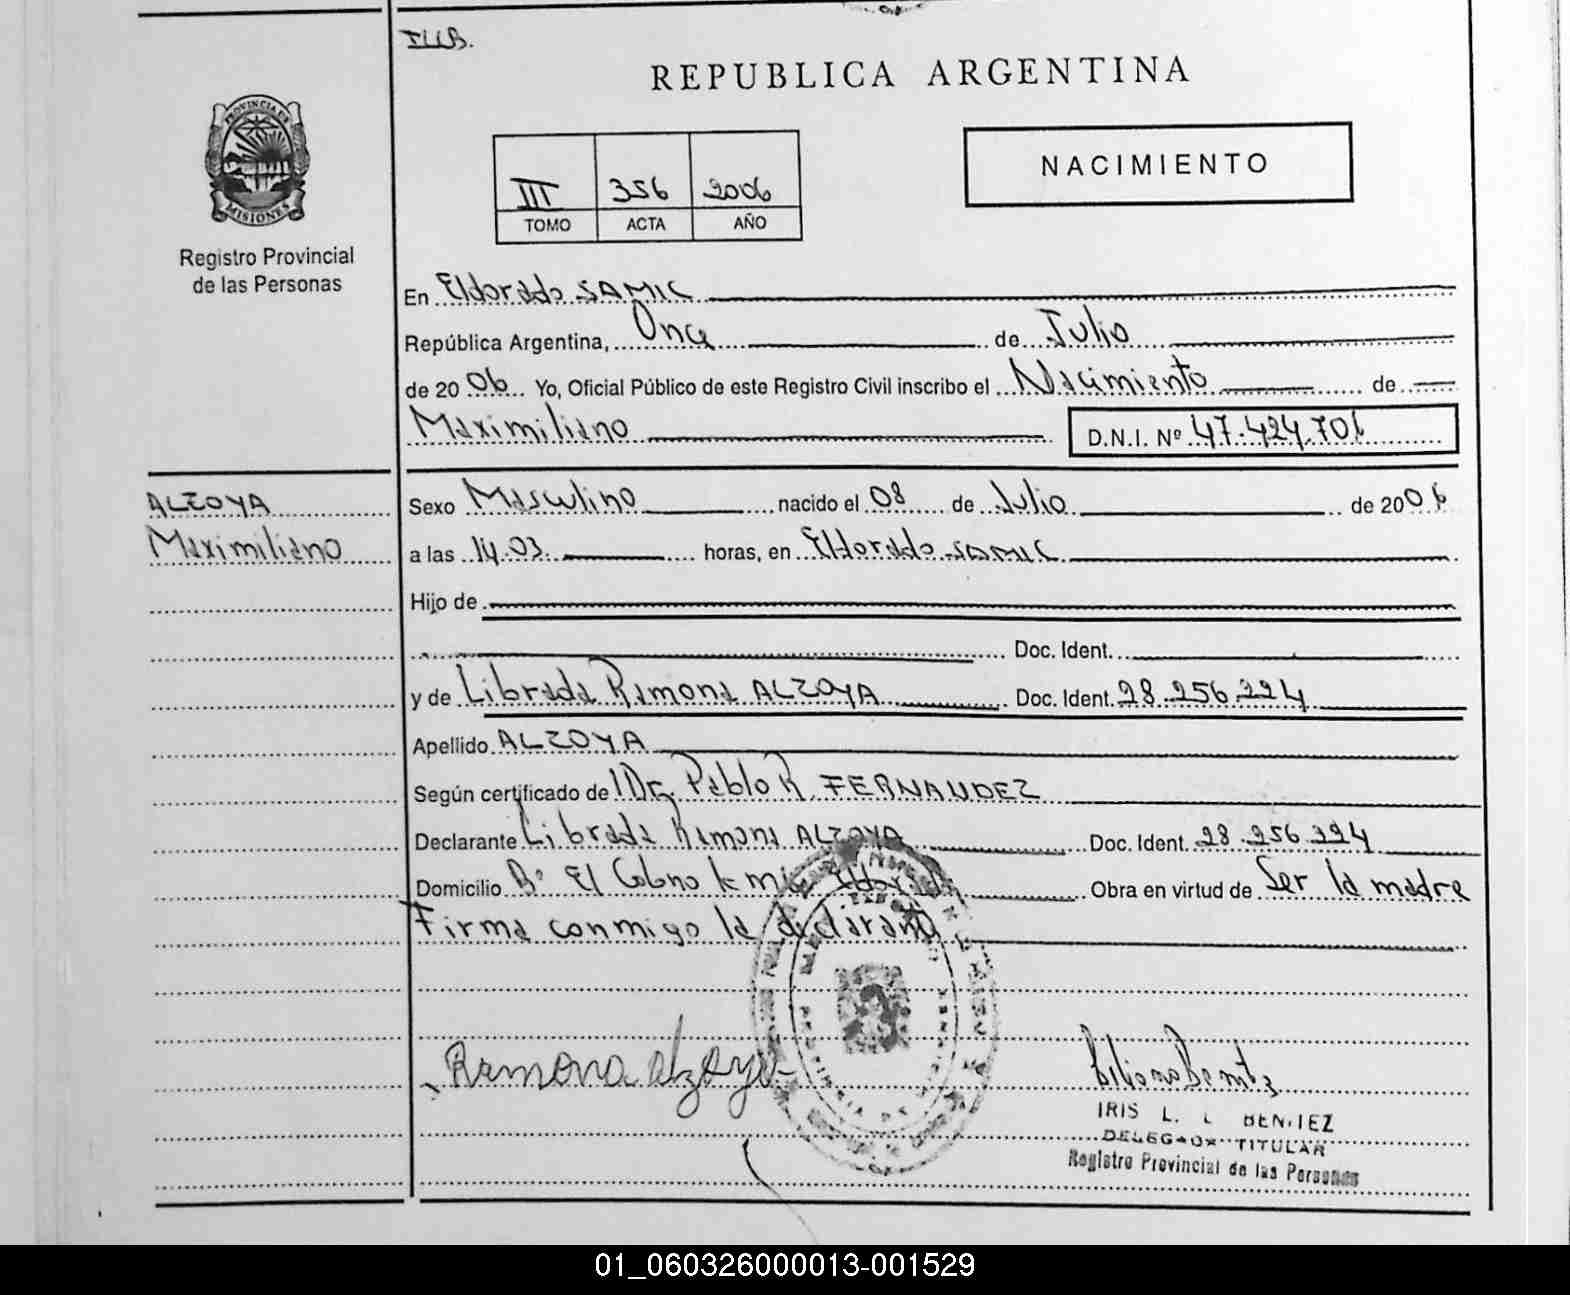 I.U.B.
REPUBLICA ARGENTINA
PROVINCIA DE
MISIONES
Registro Provincial
de las Personas
III 356 2006
TOMO ACTA AÑO
NACIMIENTO
En Eldorado SAMIC
República Argentina, Once de Julio
de 2006 Yo, Oficial Público de este Registro Civil inscribo el Nacimiento de
Maximiliano D.N.I. Nº 47.424.706
ALZOYA
Maximiliano
Sexo Masculino nacido el 08 de Julio de 2006
a las 14.03 horas, en Eldorado SAMIC
Hijo de
Doc. Ident.
y de Librada Ramona ALZOYA Doc. Ident. 28.256.224
Apellido ALZOYA
Según certificado de Dr. Pablo R. FERNANDEZ
Declarante Librada Ramona ALZOYA Doc. Ident. 28.256.224
Domicilio Bº El Colono km Eldorado Obra en virtud de Ser la madre
Firma conmigo la declarante
Ramona Alzoya
IRIS L. BENITEZ
DELEGADA TITULAR
Registro Provincial de las Personas
01_060326000013-001529